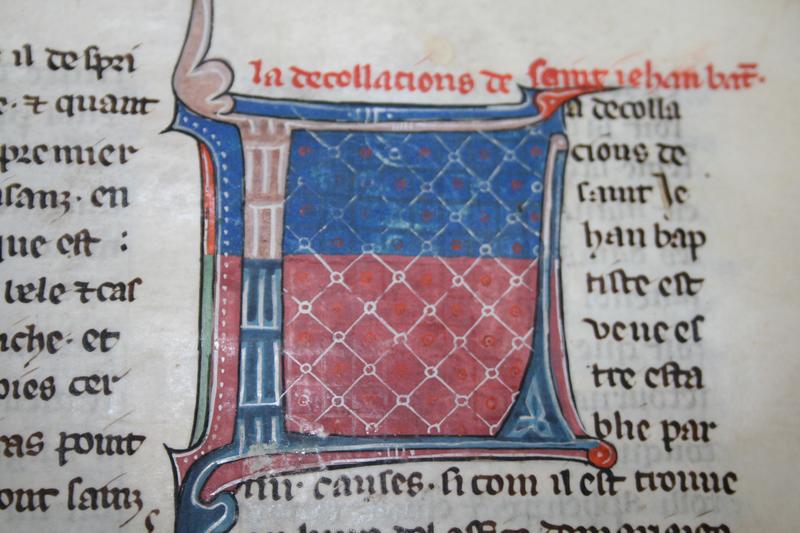 il despri
e· ⁊ quant
premier
sanz· en
que est :
lele ⁊ cas
nche· et
pies cer
ras point
out sainz
la decollacions de saint iehan bat̄·
a decolla
cions de
saint Je
han bap
tiste est
veue es
tre esta
blie par
iiii· causes· si com il est trouue